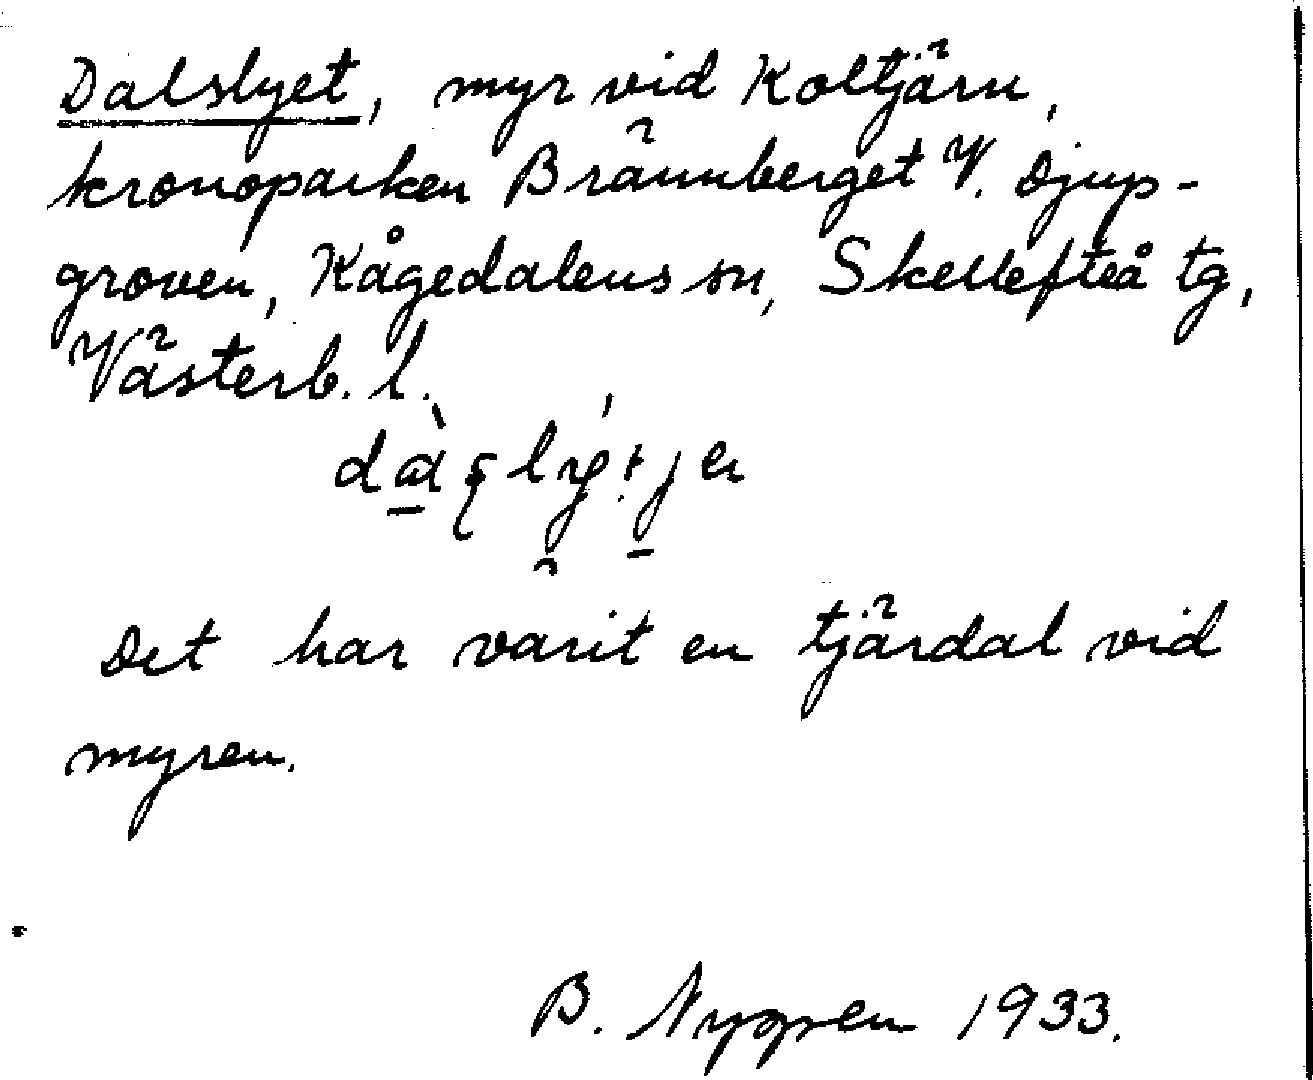 Dalslyet, myr vid Koltjärn,
kronoparken Brännberget V. Djup-
groven, Kågedalens sn, Skellefteå tg,
Västerb. l.
Det har varit en tjärdal vid
myren.
B. Nygren 1933.